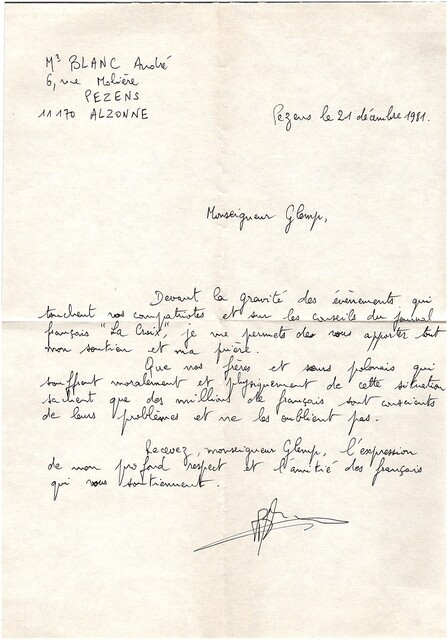 Mr BLANC André
6, rue Molière
PEZENS
11170 ALZONNE
Pezens le 21 décembre 1981.
Monseigneur Glemp,
Devant la gravité des évènements qui
touchent vos compatriotes et sur les conseils du journal
français "La Croix", je me permets de vous apporter tout
mon soutien et ma prière.
Que nos frères et sœurs polonais qui
souffrent moralement et physiquement de cette situation
sachent que des millions de français sont conscients
de leurs problèmes et ne les oublient pas.
Recevez, monseigneur Glemp, l'expression
de mon profond respect et l'amitié des français
qui vous soutiennent.